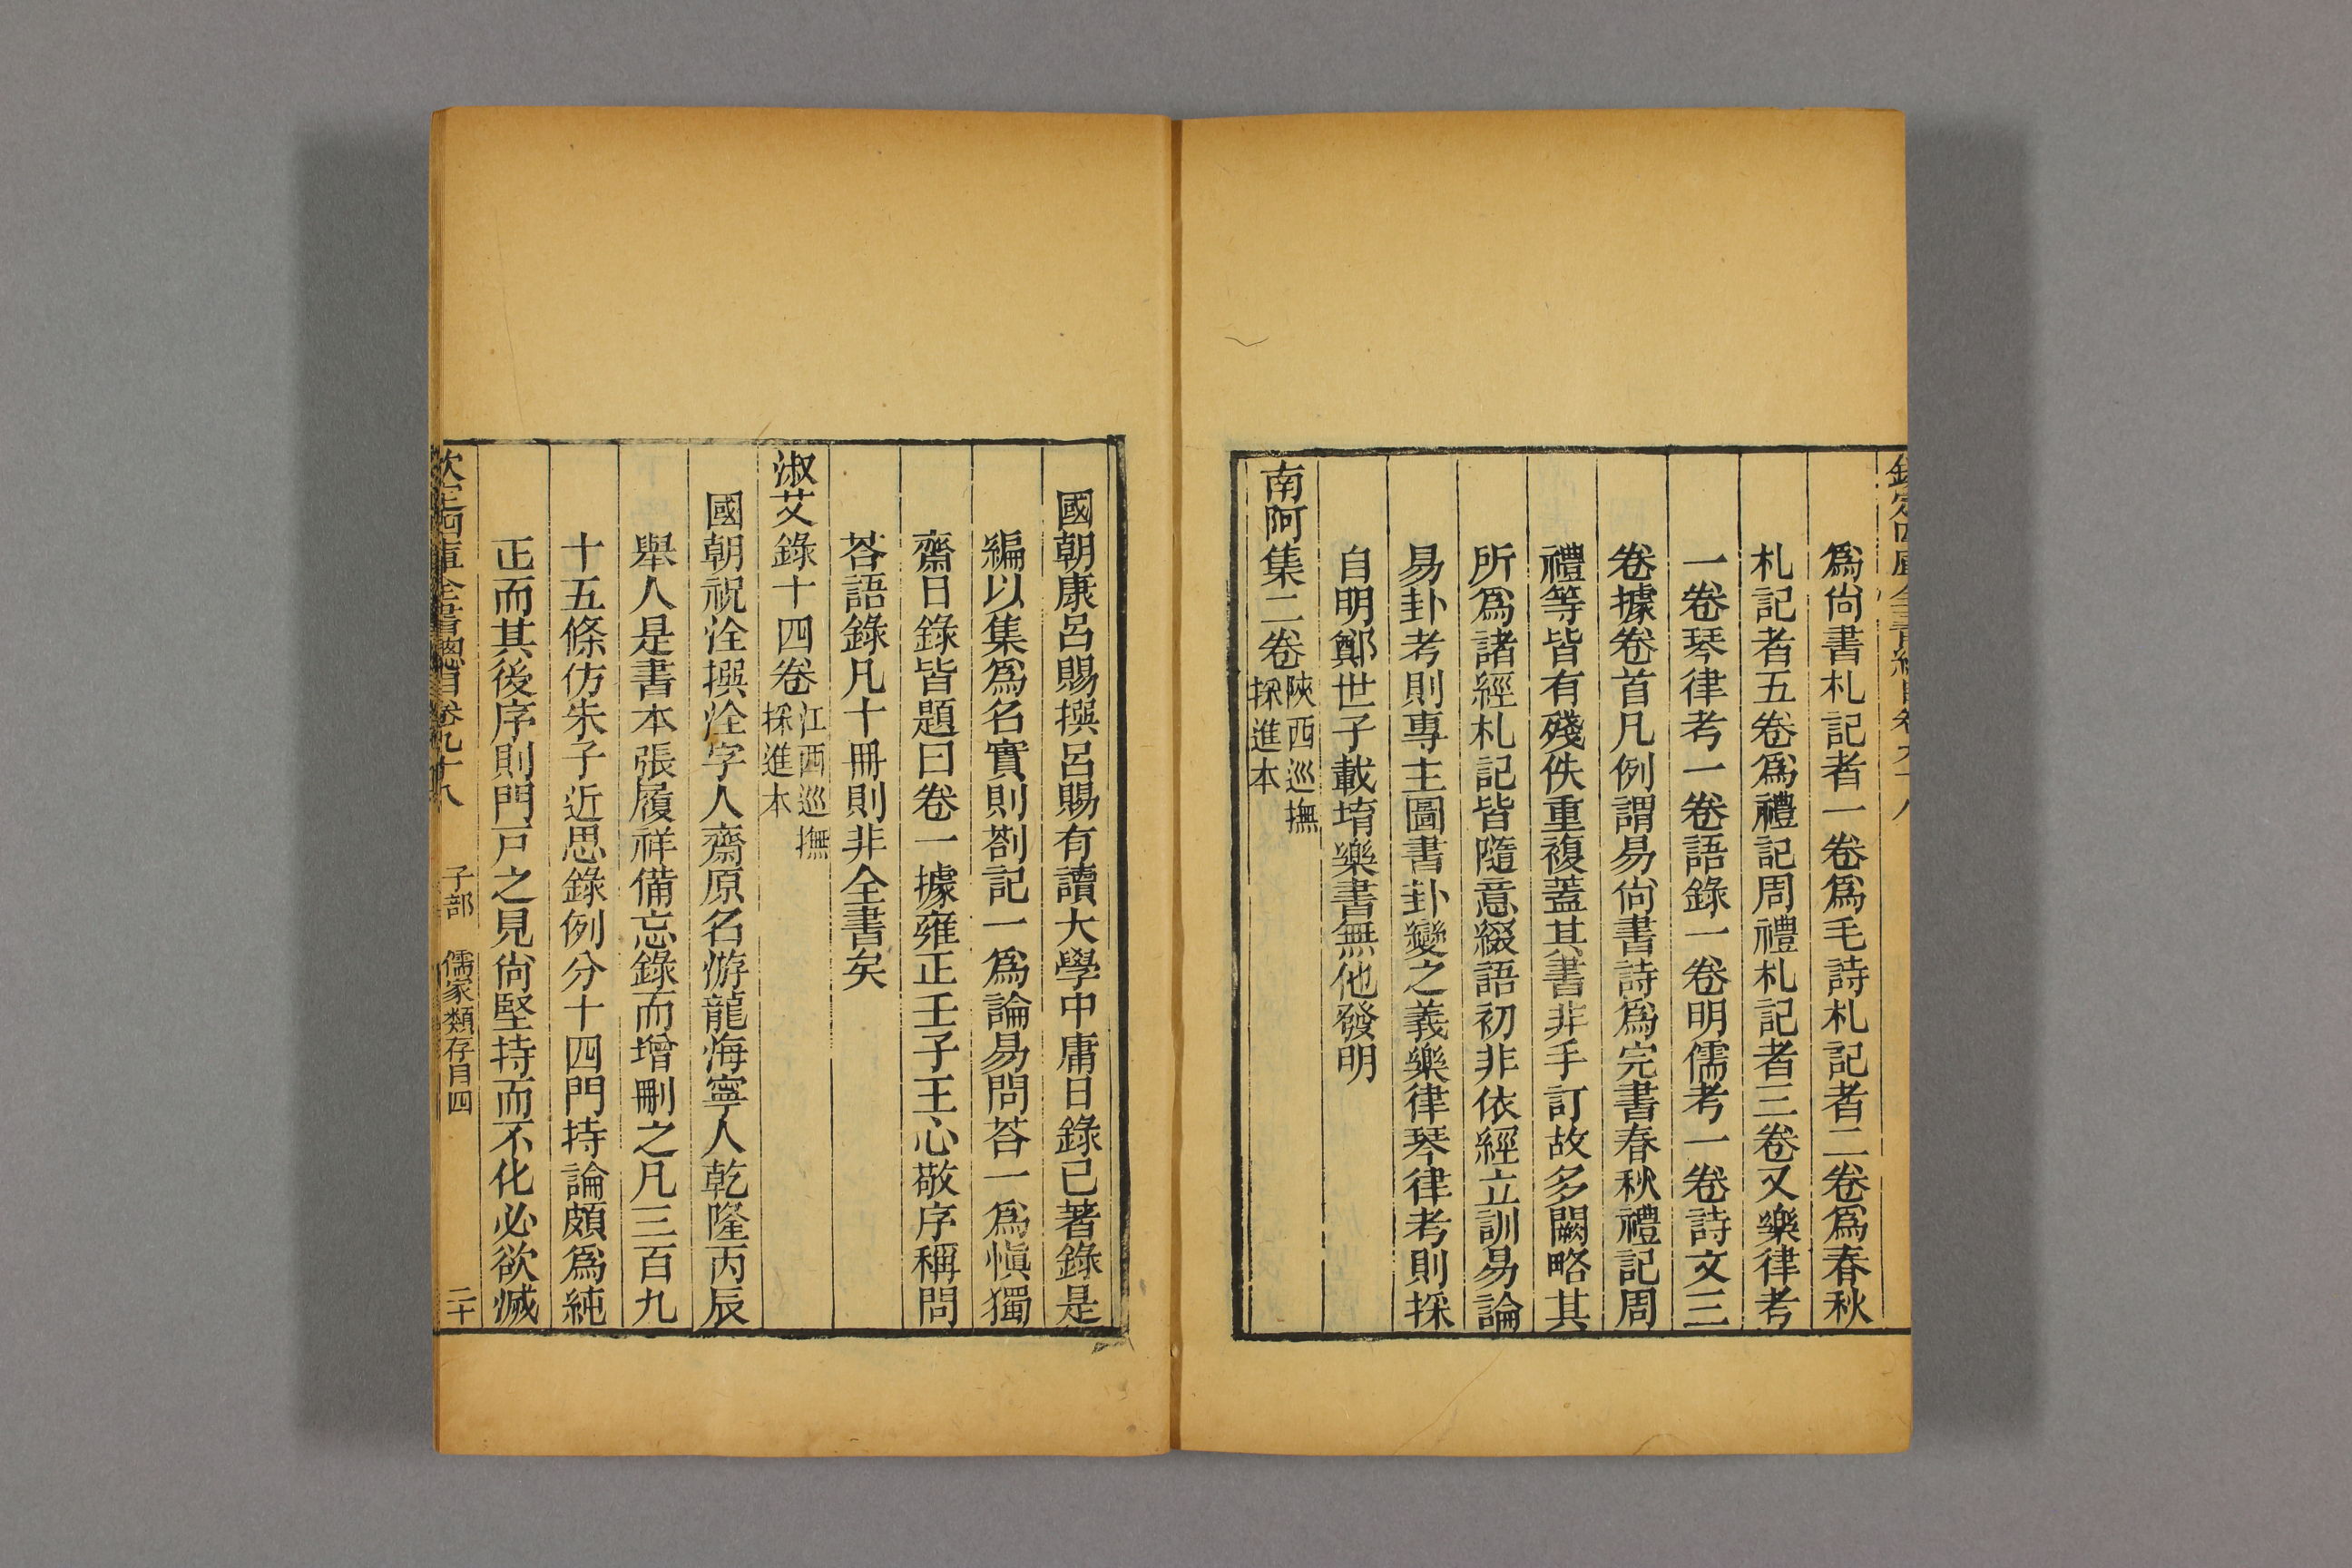 欽定四庫全書總目卷九十八
爲尙書札記者一卷爲毛詩札記者二卷爲春秋
札記者五卷爲禮記周禮札記者三卷又樂律考
一卷琴律考一卷語錄一卷明儒考一卷詩文三
卷據卷首凡例謂易尙書詩爲完書春秋禮記周
禮等皆有殘佚重複蓋其書非手訂故多闕略其
所爲諸經札記皆隨意綴語初非依經立訓易論
易卦考則專主圖書卦變之義樂律琴律考則採
自明鄭世子載堉樂書無他發明
南阿集二卷陝西巡撫採進本
國朝康呂賜撰呂賜有讀大學中庸日錄已著錄是
編以集爲名實則劄記一爲論易問荅一爲愼獨
齋日錄皆題曰卷一據雍正壬子王心敬序稱問
荅語錄凡十冊則非全書矣
淑艾錄十四卷江西巡撫採進本
國朝祝洤撰洤字人齋原名游龍海寧人乾隆丙辰
舉人是書本張履祥備忘錄而增刪之凡三百九
十五條仿朱子近思錄例分十四門持論頗爲純
正而其後序則門戸之見尙堅持而不化必欲滅
欽定四庫全書總目卷九十八 子部 儒家類存目四 二十